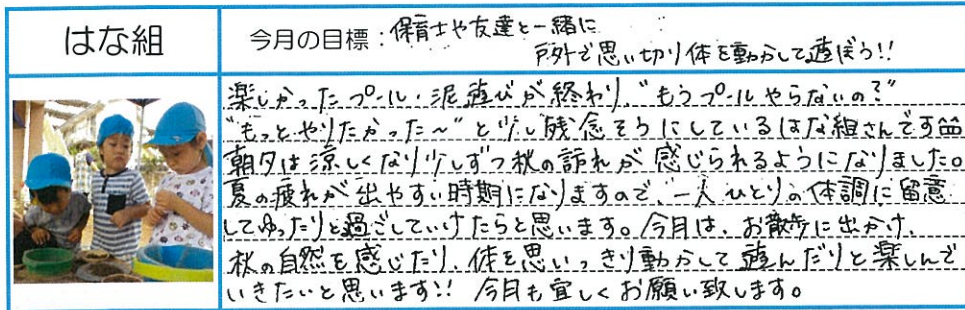 はな組
今月の目標：保育士や友達と一緒に
戸外で思い切り体を動かして遊ぼう!!
楽しかったプール・泥遊びが終わり、"もうプールやらないの？"
"もっとやりたかった〜"と少し残念そうにしているはな組さんです
朝夕は涼しくなり少しずつ秋の訪れが感じられるようになりました。
夏の疲れが出やすい時期になりますので、一人ひとりの体調に留意
してゆったりと過ごしていけたらと思います。今月は、お散歩に出かけ、
秋の自然を感じたり、体を思いっきり動かして遊んだりと楽しんで
いきたいと思います!! 今月も宜しくお願い致します。